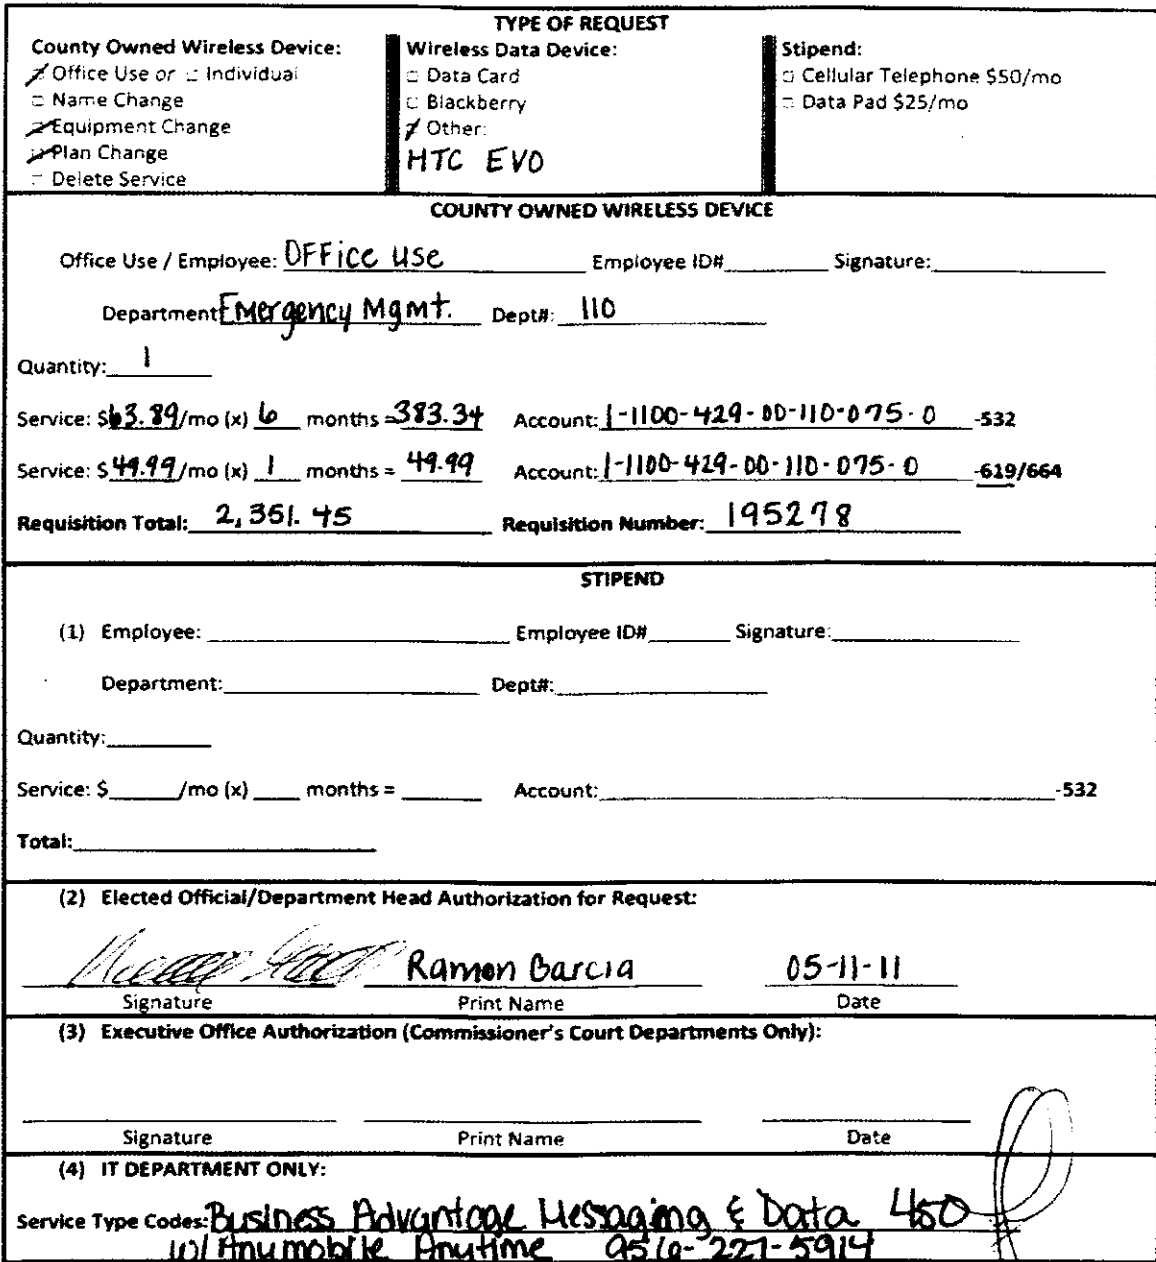 TYPE OF REQUEST
County Owned Wireless Device: Wireless Data Device: Stipend:
Office Use or Individual Data Card Cellular Telephone $50/mo
Name Change Blackberry Data Pad $25/mo
Equipment Change Other:
Plan Change HTC EVO
Delete Service
COUNTY OWNED WIRELESS DEVICE
Office Use / Employee: OFFice use Employee ID# Signature:
Department: Emergency Mgmt. Dept#: 110
Quantity: 1
Service: $63.89/mo (x) 6 months = 383.34 Account: 1-1100-429-00-110-075-0 -532
Service: $49.99/mo (x) 1 months = 49.99 Account: 1-1100-429-00-110-075-0 -619/664
Requisition Total: 2,351.45 Requisition Number: 195278
STIPEND
(1) Employee: Employee ID# Signature:
Department: Dept#:
Quantity:
Service: $ /mo (x) months = Account: -532
Total:
(2) Elected Official/Department Head Authorization for Request:
Ramon Garcia 05-11-11
Signature Print Name Date
(3) Executive Office Authorization (Commissioner's Court Departments Only):
Signature Print Name Date
(4) IT DEPARTMENT ONLY:
Service Type Codes: Business Advantage Messaging & Data 450
w/ Anymobile Anytime 956-227-5914